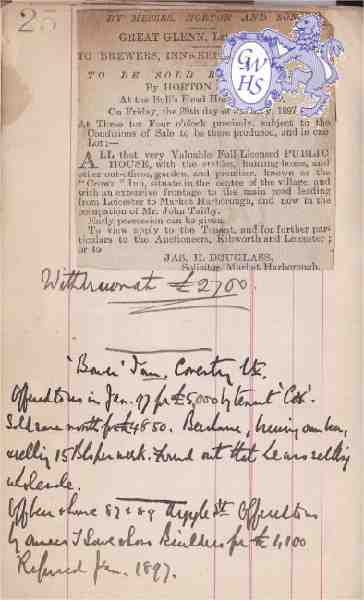 25
BY MESSRS. HORTON AND SON
GREAT GLENN,
TO BREWERS,
TO BE SOLD
By HORTON
At the Bull's Head
On Friday, the 29th day of 1897
At Three for Four o'clock precisely, subject to the
Conditions of Sale to be then produced, and in one
Lot:—
ALL that very Valuable Full-Licensed PUBLIC
HOUSE, with the stables, buildings, and
other out-offices, garden, and premises, known as the
"Crown" Inn, situate in the centre of the village, and
with an extensive frontage to the main road leading
from Leicester to Market Harborough, and now in the
occupation of Mr. John
Early possession can be given.
To view apply to the Tenant, and for further par-
ticulars to the Auctioneers, Kibworth and Leicester;
or to
JAS. H. DOUGLASS,
Solicitor, Market Harborough.
GWHS
Withdrawn at £2700.
Inn, Coventry
Offered to us in Jan. 97 for £5,000 by tenant "Cox".
Sold same month for £4850. brewing own beer,
selling 15 Bls per week. Found out that he was selling
wholesale.
87 & 89 Offered to us
by Builders for £1,100
Refused Jan. 1897.